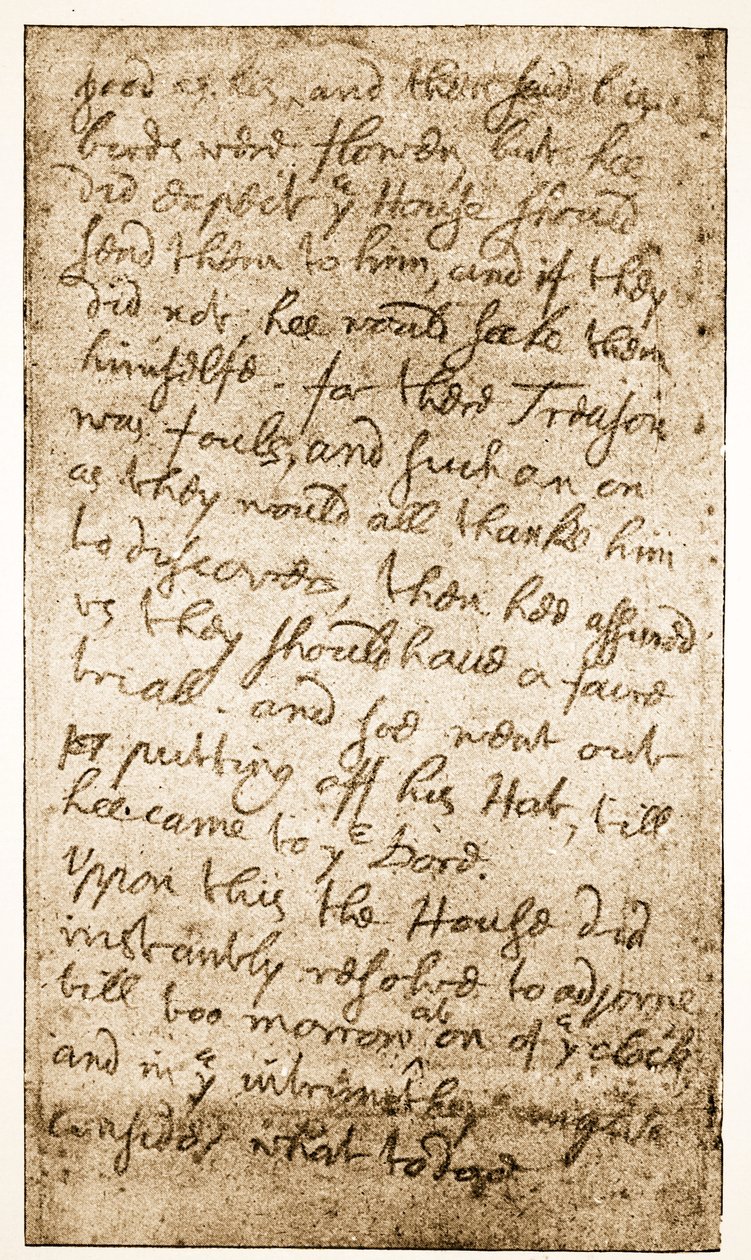 good as his, and then said his
birds were flowen, but hee
did expect yᵉ House should
send them to him, and if they
did not hee would seeke them
himselfe. for there Treason
was foule, and such an on
as they would all thanke him
to discover, then hee assured
vs they should haue a faire
triall. and soe went out
putting off his Hat, till
hee came to yᵉ Dore.
Vppon this the House did
instantly resolve to adjorne
till too morrow at on of yᵉ clock
and in yᵉ intrim they might
consider what to doe